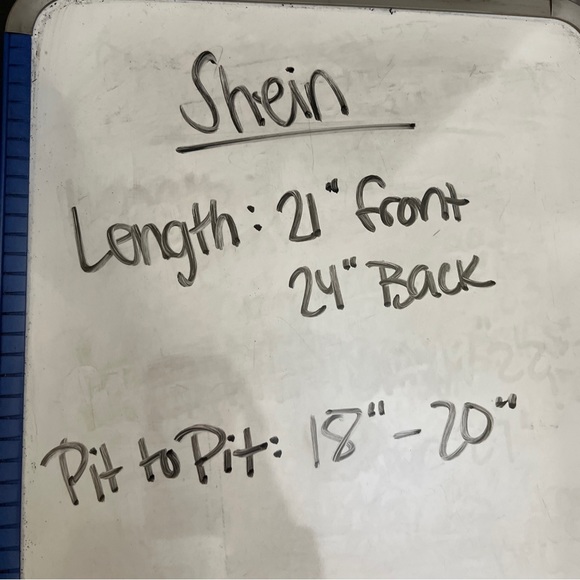 Shein
Length: 21" front
24" Back
Pit to Pit: 18" - 20"